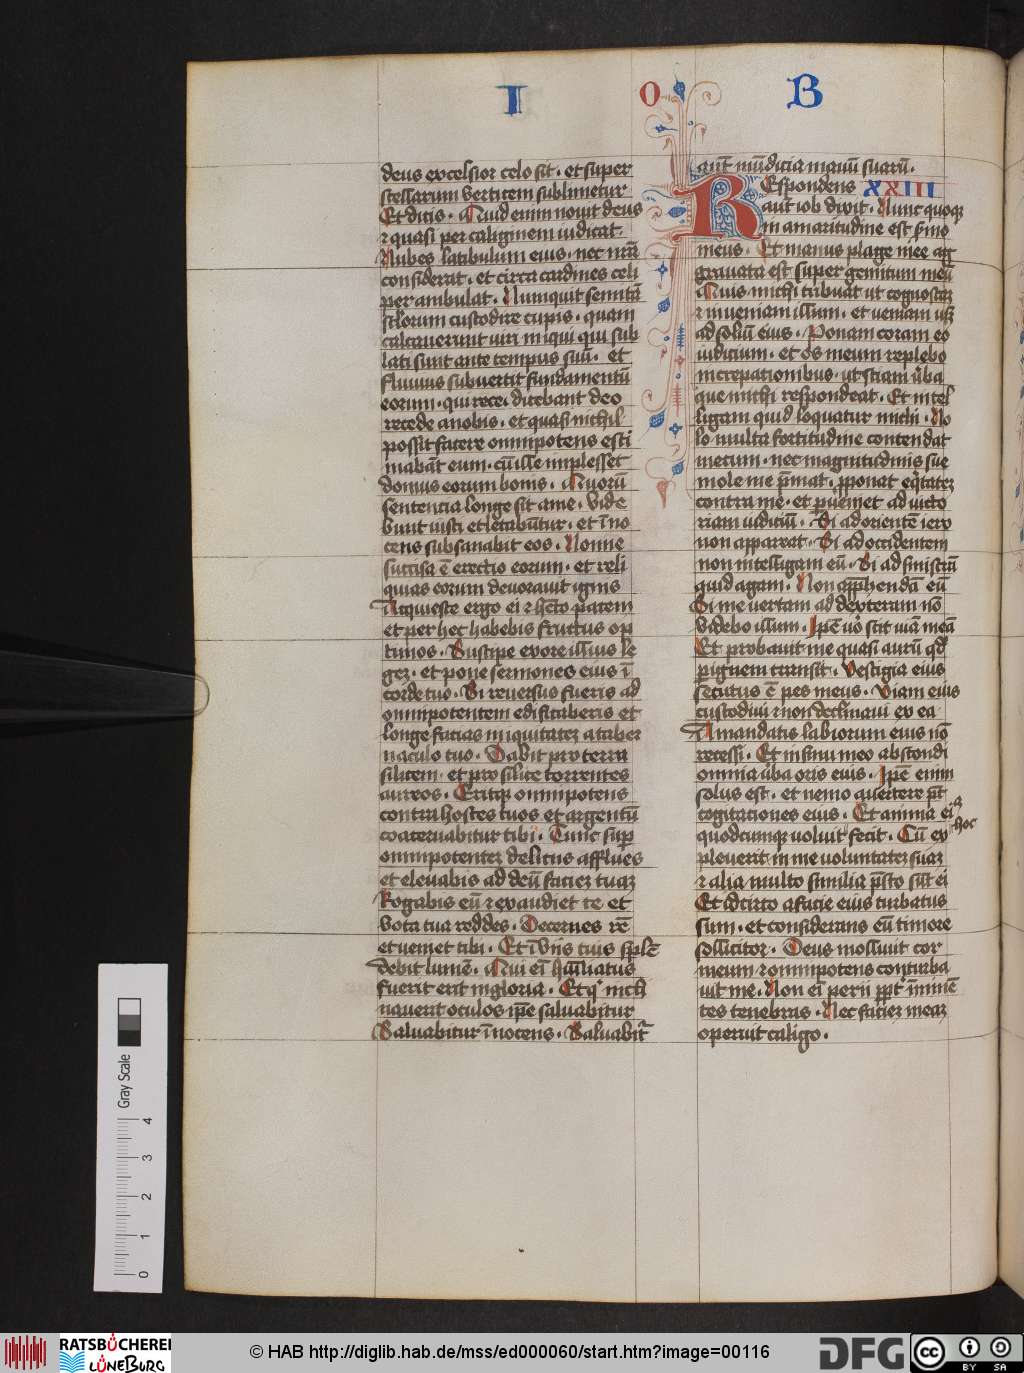 I O B
deus excelsior celo sit . et super
stellarum verticem sublimetur
Et dicis . Quid enim nouit deus
⁊ quasi per caliginem iudicat .
Nubes latibulum eius . nec nr̄a
considerat . et circa cardines celi
perambulat . Numquit semitā
sclorum custodire cupis . quam
calcauerunt viri iniqui qui sub
lati sunt ante tempus suū . et
fluuius subuertit fundamentū
eorum . qui
recede a nobis . et quasi nichil
possit facere omnipotens esti
mabāt eum . cū ille implesset
domus eorum bonis . Quorū
sentencia longe sit a me . vide
bunt iusti et letabūtur . et īno
cens subsanabit eos . Nonne
succisa ē erectio eorum . et reli
quias eorum deuorauit ignis
Acquiesce ergo ei ⁊ pacem
et per hec habebis fructus op
timos . Suscipe ex ore illius le
gez . et pone sermones eius ī
corde tuo . Si reuersus fueris ad
omnipotentem edificaberis et
longe facias iniquitatez a taber
naculo tuo . Dabit pro terra
silicem . et pro silice torrentes
aureos . Eritqz omnipotens
contra hostes tuos et argentū
coaceruabitur tibi . Tunc sup̄
omnipotentez deliciis afflues
et eleuabis ad deū faciez tuaz
Rogabis eū ⁊ exaudiet te et
vota tua reddes . Decernes rē
et veniet tibi . Et ī viis tuis splē
debit lumē . Qui eī hūiliatus
fuerit erit in gloria . Et q' incli
nauerit oculos ip̄e saluabitur
Saluabitur īnocens . Saluabit̄
aut̄ mūdicia manuū suarū .
Respondens XXIII
aut̄ iob dixit . Nunc quoqz
in amaritudine est s̄mo
meus . Et manus plage mee ag
grauata est super gemitum meū
Quis michi tribuat ut cognoscaz
⁊ inueniam illum . et veniam vsqz
ad soliū eius . Ponam coram eo
iudicium . et os meum replebo
increpationibus . ut sciam v̄ba
que michi respondeat . Et intel
ligam quid loquatur michi . No
lo multa fortitudine contendat
mecum . nec magnitudinis sue
mole me p̄mat . p̄ponat eq̄tatez
contra me . et p̄ueniet ad victo
riam iudiciū . Si ad orientē iero
non apparet . Si ad occidentem
non intelligam eū . Si ad sinistrā
quid agam . Non app̄hendā eū
Si me vertam ad dexteram nō
videbo illum . Ip̄e v̄o scit viā meā
Et probauit me quasi aurū qd̄
p̄ ignem transit . Vestigia eius
secutus ē pes meus . Viam eius
custodiui ⁊ non declinaui ex ea
A mandatis labiorum eius nō
recessi . Et in sinu meo abscondi
omnia v̄ba oris eius . Ip̄e enim
solus est . et nemo auertere p̄t
cogitaciones eius . Et anima eiꝰ
quodcumqz voluit fecit . Cū ex
hoc
pleuerit in me voluntatez suaz
⁊ alia multo similia p̄sto sūt ei
Et idcirco a facie eius turbatus
sum . et considerans eū timore
sollicitor . Deus molliuit cor
meum ⁊ omnipotens conturba
uit me . Non eī perii īminē
tes tenebras . Nec faciez meaz
operuit caligo .
Gray Scale
0 1 2 3 4
RATSBÜCHEREI
LÜNEBURG
© HAB http://diglib.hab.de/mss/ed000060/start.htm?image=00116
DFG
cc BY SA